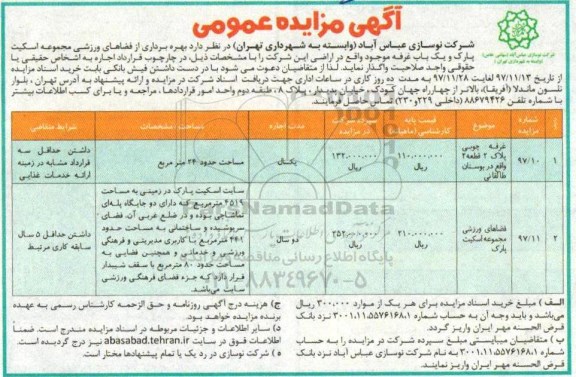 آگهی مزایده عمومی
شرکت نوسازی عباس آباد (وابسته به شهرداری تهران) در نظر دارد بهره برداری از فضاهای ورزشی مجموعه اسکیت
پارک و یک باب غرفه موجود واقع در اراضی این شرکت را با مشخصات ذیل، در چارچوب قرارداد اجاره به اشخاص حقیقی یا
حقوقی واجد صلاحیت واگذار نماید. لذا از متقاضیان دعوت می شود با در دست داشتن فیش بانکی بابت خرید اسناد مزایده
از تاریخ ۹۷/۱۱/۱۳ لغایت ۹۷/۱۱/۲۸ به مدت ده روز کاری در ساعات اداری جهت دریافت اسناد شرکت در مزایده و ارائه پیشنهاد به آدرس تهران، بلوار
نلسون ماندلا (آفریقا)، بالاتر از چهارراه جهان کودک، خیابان پدیدار، پلاک ۸، طبقه دوم واحد امور قراردادها، مراجعه و یا برای کسب اطلاعات بیشتر
با شماره تلفن ۸۸۶۷۹۴۲۶ (داخلی ۲۲۹و۲۳۰) تماس حاصل فرمایند.
ردیف شماره مزایده موضوع قیمت پایه کارشناسی (ماهیانه) سپرده شرکت در مزایده مدت اجاره مساحت / مشخصات شرایط متقاضی
۱ ۹۷/۱۰ غرفه چوبی پلاک ۲ قطعه ۲ واقع در بوستان طالقانی ۱۱۰.۰۰۰.۰۰۰ ریال ۱۳۲.۰۰۰.۰۰۰ ریال یکسال مساحت حدود ۲۴ متر مربع داشتن حداقل سه قرارداد مشابه در زمینه ارائه خدمات غذایی
۲ ۹۷/۱۱ فضاهای ورزشی مجموعه اسکیت پارک ۲۱۰.۰۰۰.۰۰۰ ریال ۲۵۲.۰۰۰.۰۰۰ ریال دو سال سایت اسکیت پارک در زمینی به مساحت ۴۵۱۹ مترمربع که دارای دو جایگاه پله‌ای تماشاچی بوده و در ضلع غربی آن، فضای سرپوشیده و ساختمانی به مساحت حدود ۴۴۱ مترمربع با کاربری مدیریتی و فرهنگی ورزشی و خدماتی و همچنین فضایی به مساحت حدود ۸۰ مترمربع با سقف شیبدار قرار دارد که جزء فضای فرهنگی ورزشی میباشد. داشتن حداقل ۵ سال سابقه کاری مرتبط
الف) مبلغ خرید اسناد مزایده برای هر یک از موارد ۳۰۰.۰۰۰ ریال
می‌باشد و باید وجه آن به حساب شماره ۳۰۰۱.۱۱.۵۵۷۶۱۶۸.۱ نزد بانک
قرض الحسنه مهر ایران واریز گردد.
ب) متقاضیان میبایستی مبلغ سپرده شرکت در مزایده را به حساب
شماره ۳۰۰۱.۱۱.۵۵۷۶۱۶۸.۱ به نام شرکت نوسازی عباس آباد نزد بانک
قرض الحسنه مهر ایران واریز نمایند.
ج) هزینه درج آگهی روزنامه و حق الزحمه کارشناس رسمی به عهده
برنده مزایده خواهد بود.
د) سایر اطلاعات و جزئیات مربوطه در اسناد مزایده مندرج است. ضمناً
اطلاعات فوق در سایت abasabad.tehran.ir نیز درج گردیده است.
ه) شرکت نوسازی در رد یک یا تمام پیشنهادها مختار است.